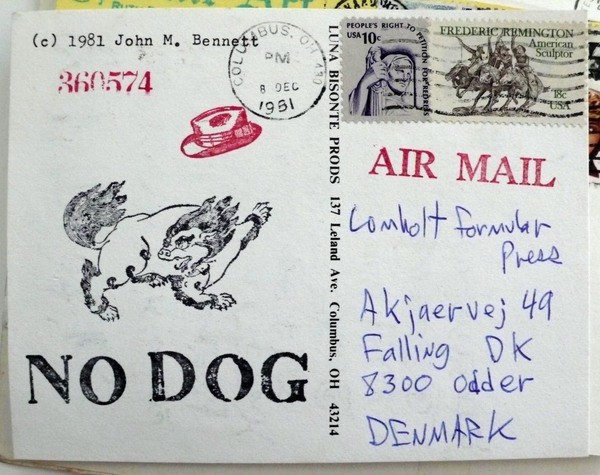 (c) 1981 John M. Bennett
360574
COLUMBUS, OH
PM
8 DEC
1981
PEOPLE'S RIGHT TO PETITION FOR REDRESS
USA 10c
FREDERIC REMINGTON
American
Sculptor
18c
USA
LUNA BISONTE PRODS 137 Leland Ave. Columbus, OH 43214
AIR MAIL
Comholt Formular
Press
Akjaervej 49
Falling DK
8300 Odder
DENMARK
NO DOG